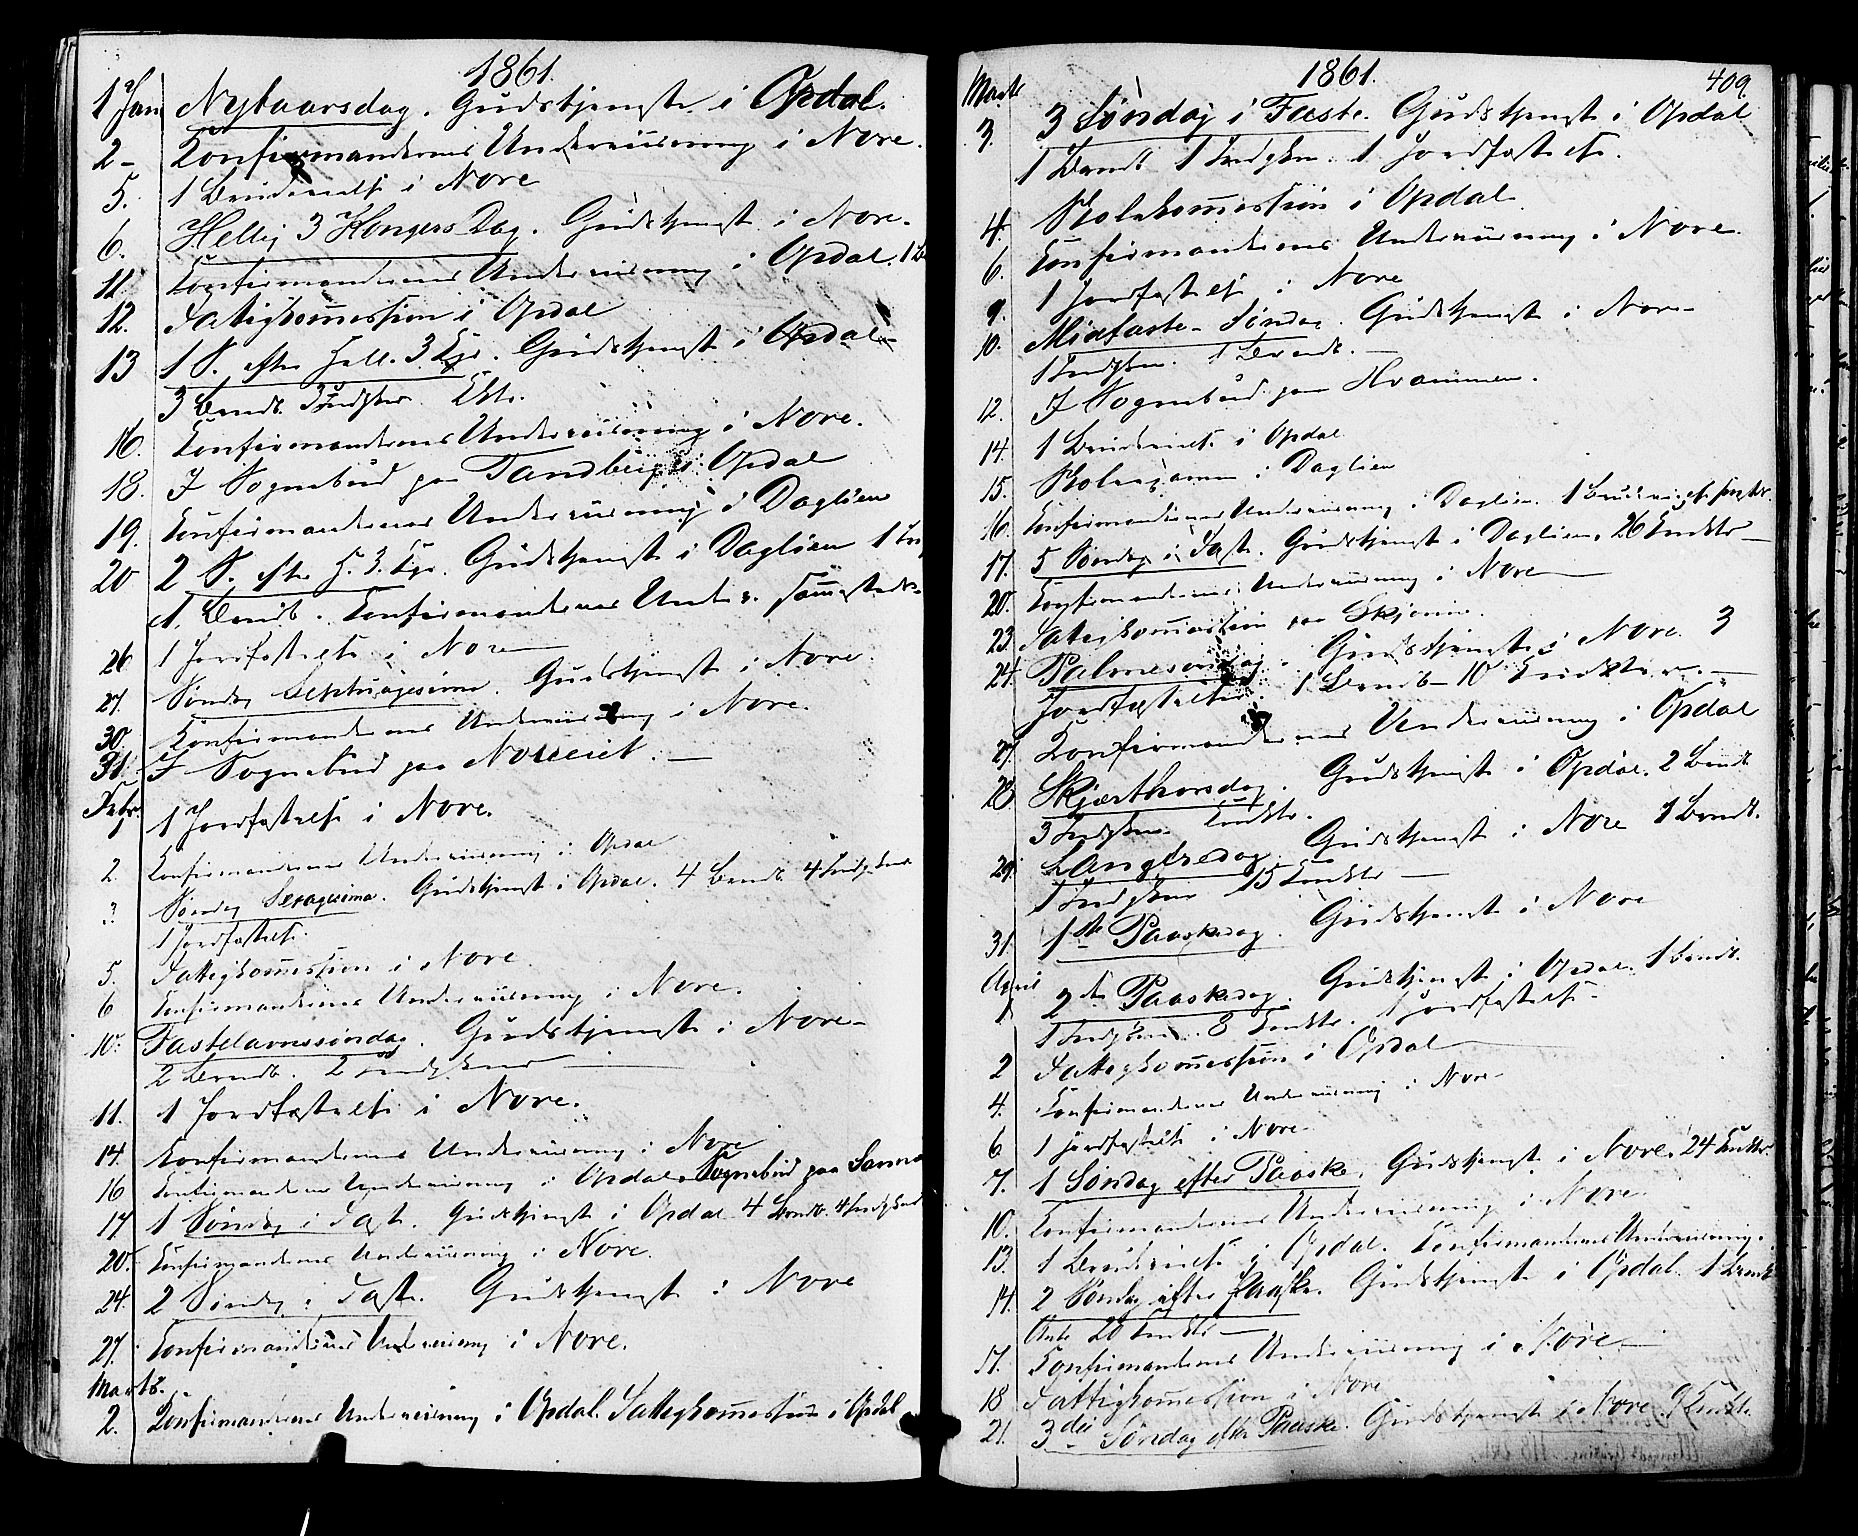 1861.
1 Jan Nytaarsdag. Gudstjeneste i Opdal.
2 - Konfirmandernes Underviisning i Nore.
5. 1 Brudevielse i Nore
6. Hellig 3 Kongers Dag. Gudstjeneste i Nore.
11. Konfirmandernes Underviisning i Opdal. 1
12. Fattigkom̅ession i Opdal
13 1 S. efter Hell. 3 Kgr. Gudstjeneste i Opdal
3 Barnd. 3 Indgkoner.
16. Konfirmandernes Underviisning i Nore.
18. I Sognebud paa Tandberg i Opdal
19. Konfirmandernes Underviisning i Daglien
20 2 S. efter H. 3. Kgr. Gudstjeneste i Daglien 1
1. Barnd. Konfirmandernes Underv. sam̅esteds
26 1 Jordfæstelse i Nore
27. Søndag Septuagesima. Gudstjeneste i Nore.
30. Konfirmandernes Underviisning i Nore.
31. I Sognebud paa Noreeiet.
Febr.
1 1 Jordfæstelse i Nore.
2. Konfirmandernes Underviisning i Opdal
3 Søndag Sexagesima. Gudstjeneste i Opdal. 4 Barnd. 4 Indgkoner
1 Jordfæstelse
5. Fattigkom̅ession i Nore
6 Konfirmandernes Underviisning i Nore.
10. Fastelavnssøndag. Gudstjeneste i Nore
2 Barnd. 2 Indgkoner
11. 1 Jordfæstelse i Nore.
14. Konfirmandernes Underviisning i Nore
16 Konfirmandernes Underviisning i Opdal. Sognebud paa
17 1 Søndag i Faste. Gudstjeneste i Opdal 4 Barnd. 4 Indgkoner
20. Konfirmandernes Underviisning i Nore.
24. 2 Søndag i Faste. Gudstjeneste i Nore
27. Konfirmandernes Underviisning i Nore.
Marts.
2. Konfirmandernes Underviisning i Opdal. Fattigkom̅ession i Opdal
1861. 409.
Marts
3. 3 Søndag i Faste. Gudstjeneste i Opdal
1 Barnd. 1 Indgkon. 1 Jordfæstelse.
4. Skolekom̅ession i Opdal
6. Konfirmandernes Underviisning i Nore.
9. 1 Jordfæstelse i Nore
10. Midfaste-Søndag. Gudstjeneste i Nore
1 Indgkon. 1 Barnd.
12. I Sognebud paa Hvammen.
14. 1 Brudevielse i Opdal
15. Skoleexamen i Daglien
16. Konfirmandernes Underviisning i Daglien. 1 Brudevielse
17. 5 Søndag i Faste. Gudstjeneste i Daglien. 26 Kom̅kter
20. Konfirmandernes Underviisning i Nore
23. Fattigkom̅ession paa Skjønne.
24. Palmesøndag. Gudstjeneste i Nore. 3
Jordfæstelser. 1 Barnd. 10
27. Konfirmandernes Underviisning i Opdal
28 Skjærthorsdag. Gudstjeneste i Opdal. 2 Barnd.
3 Indgkon.
29. Langfredag. Gudstjeneste i Nore 1 Barnd.
1 Indgkon 15
31. 1ste Paaskedag. Gudstjeneste i Nore
April
1 2den Paaskedag. Gudstjeneste i Opdal. 1 Barnd.
1 Indgkon. 8 1 Jordfæstelse
2 Fattigkom̅ession i Opdal
4. Konfirmandernes Underviisning i Nore
6 1 Jordfæstelse i Nore.
7. 1 Søndag efter Paaske. Gudstjeneste i Nore. 24
10. Konfirmandernes Underviisning i Nore
13. 1 Brudevielse i Opdal. Konfirmandernes Underviisning.
14. 2 Søndag efter Paaske. Gudstjeneste i Opdal. 1 Barnd.
20
17. Konfirmandernes Underviisning i Nore
18 Fattigkom̅ession i Nore
21. 3die Søndag efter Paaske. Gudstjeneste i Nore. 9